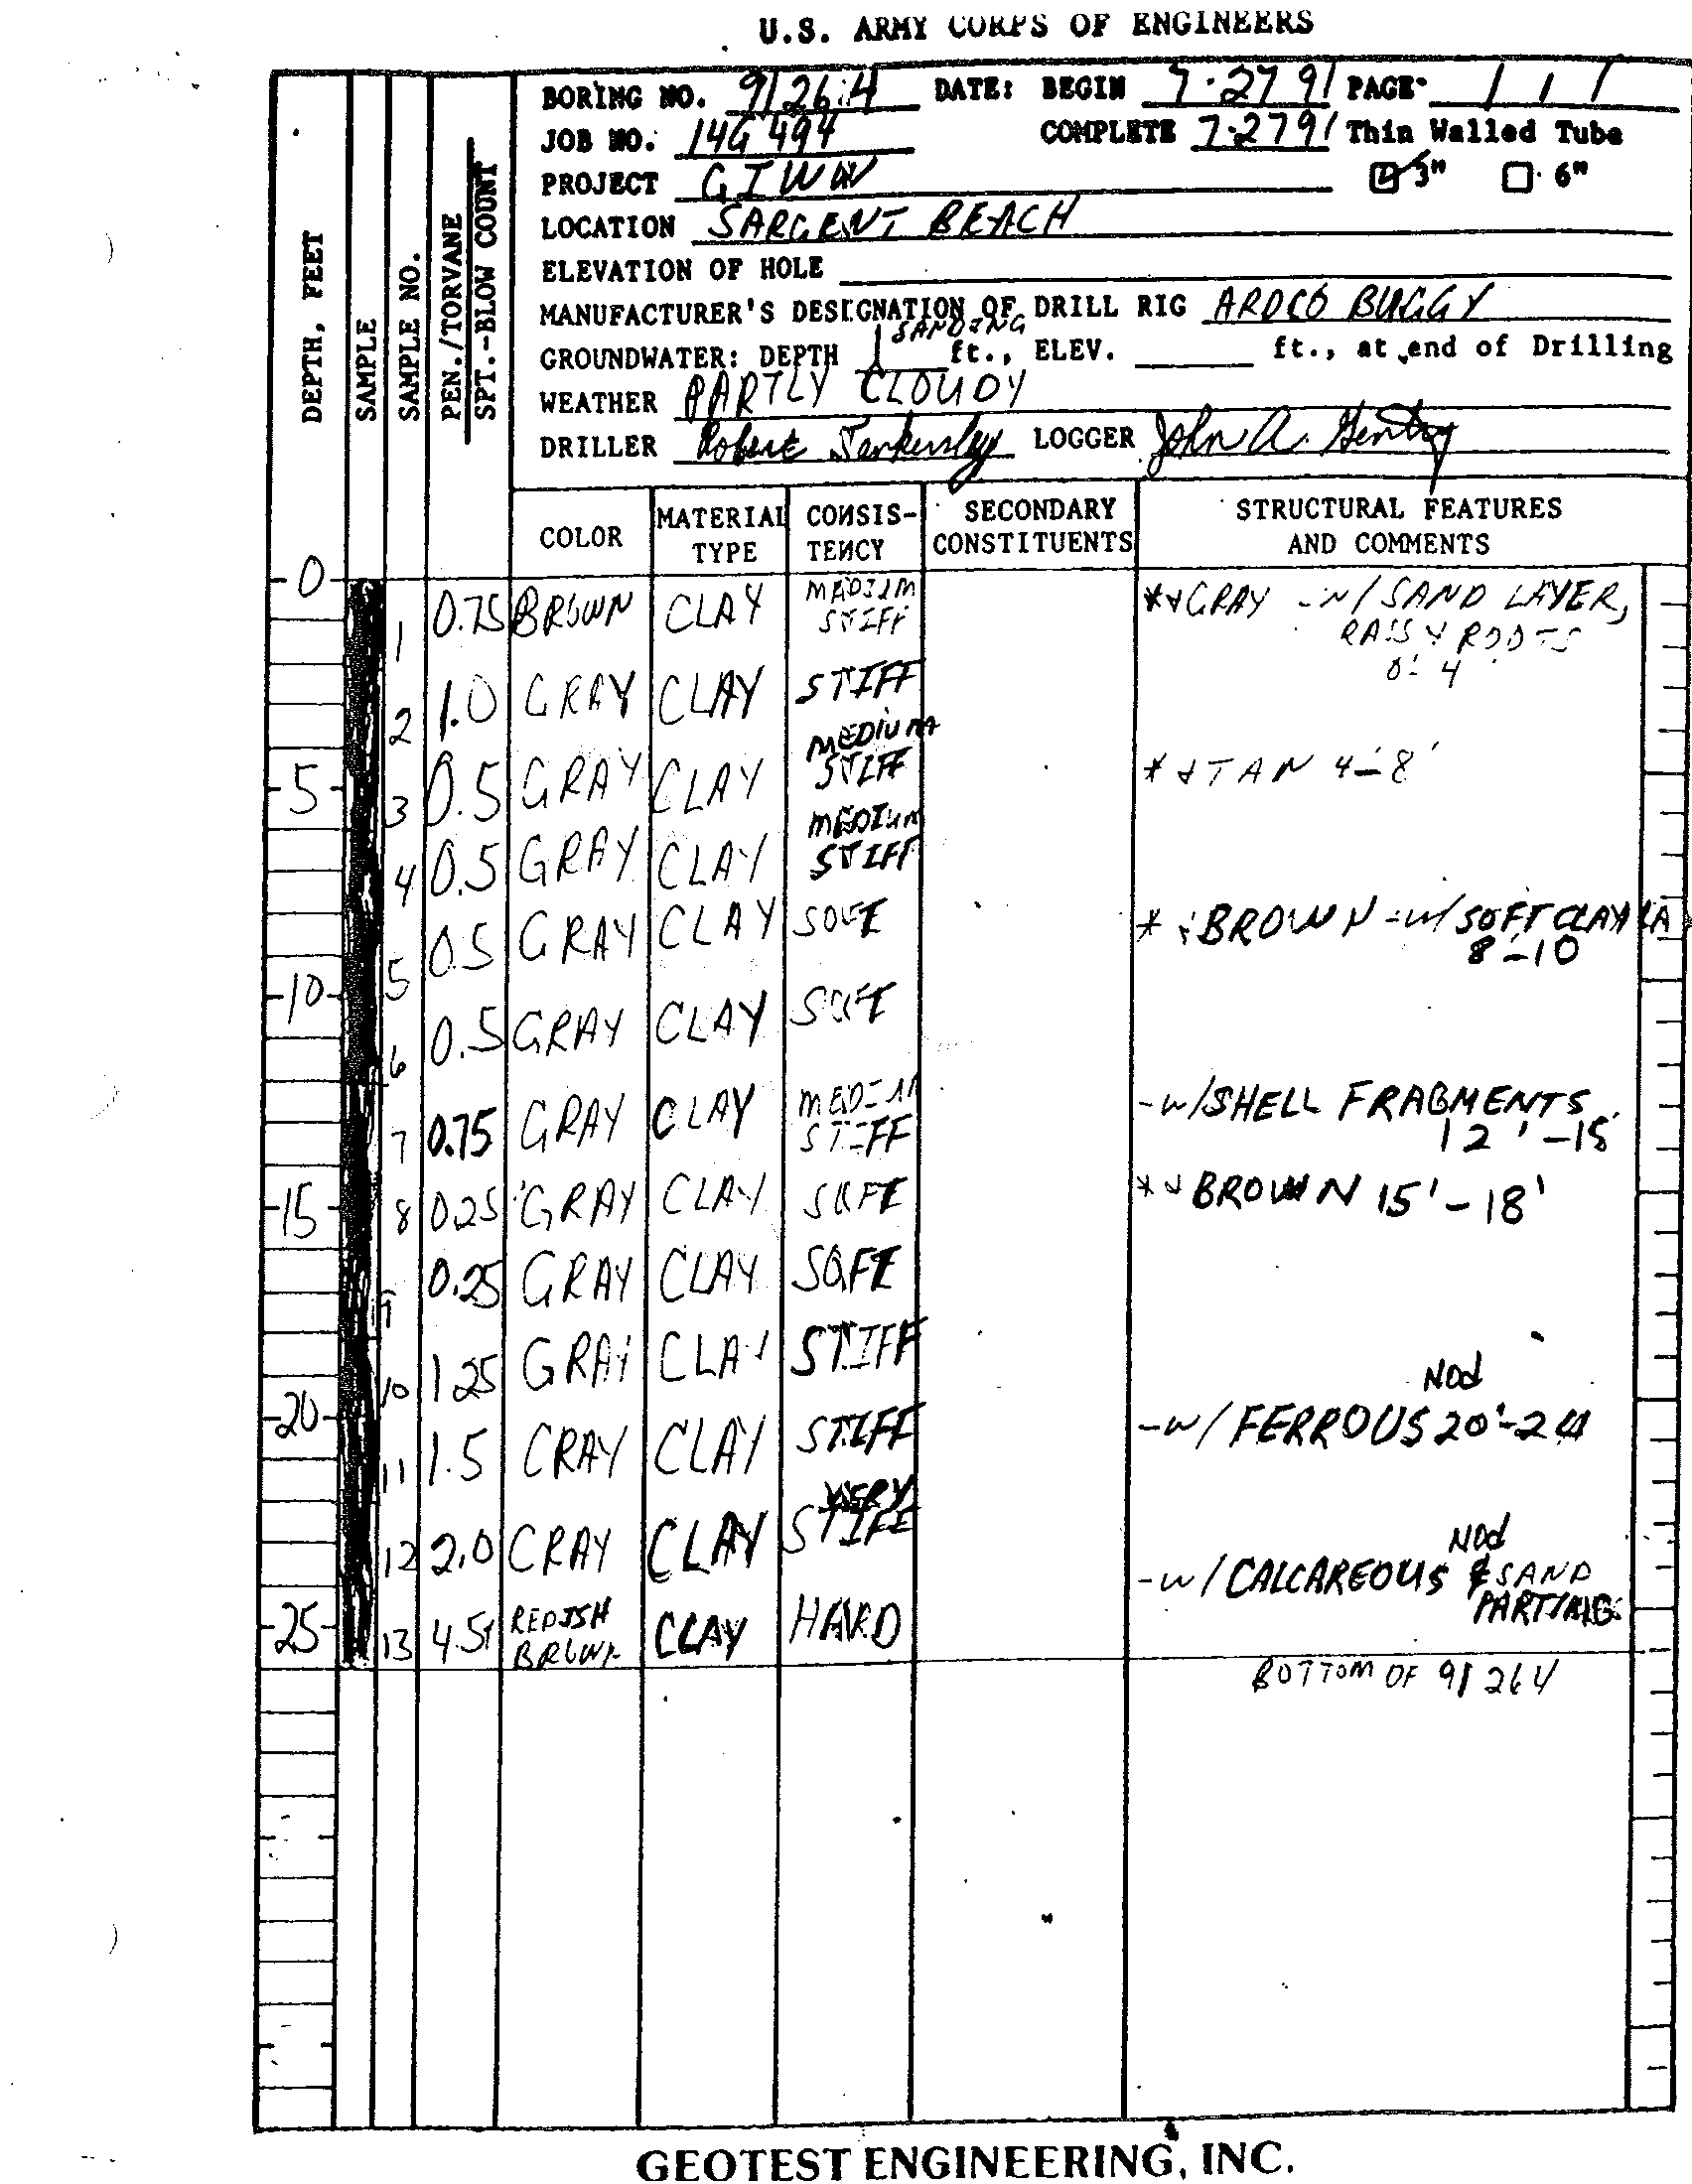 U.S. ARMY CORPS OF ENGINEERS
BORING NO. 91-264 DATE: BEGIN 7-27 91 PAGE 1 / 1
JOB NO. 14G 494 COMPLETE 7-27 91 Thin Walled Tube
PROJECT GIWW 3" 6"
LOCATION SARGENT BEACH
ELEVATION OF HOLE
MANUFACTURER'S DESIGNATION OF DRILL RIG ARDCO BUGGY
GROUNDWATER: DEPTH 1 STANDING ft., ELEV. ft., at end of Drilling
WEATHER PARTLY CLOUDY
DRILLER Robert LOGGER John A. Gentry
DEPTH, FEET
SAMPLE
SAMPLE NO.
PEN./TORVANE
SPT.-BLOW COUNT
COLOR MATERIAL TYPE CONSIS-TENCY SECONDARY CONSTITUENTS STRUCTURAL FEATURES AND COMMENTS
0
1 0.75 BROWN CLAY MEDIUM STIFF GRAY -W/ SAND LAYER,
ROOTS
0-4
2 1.0 GRAY CLAY STIFF
5
3 0.5 GRAY CLAY MEDIUM STIFF * & TAN 4-8'
4 0.5 GRAY CLAY MEDIUM STIFF
5 0.5 GRAY CLAY SOFT * & BROWN -W/ SOFT CLAY LA
8-10
10
6 0.5 GRAY CLAY SOFT
7 0.75 GRAY CLAY MEDIUM STIFF -W/SHELL FRAGMENTS
12'-15'
15
8 0.25 GRAY CLAY SOFT * & BROWN 15'-18'
9 0.25 GRAY CLAY SOFT
10 1.25 GRAY CLAY STIFF
20
11 1.5 GRAY CLAY STIFF -W/ FERROUS NOd 20'-24
12 2.0 GRAY CLAY VERY STIFF
-W/ CALCAREOUS NOd & SAND PARTING
25
13 4.5+ REDISH BROWN CLAY HARD
BOTTOM OF 91 264
GEOTEST ENGINEERING, INC.